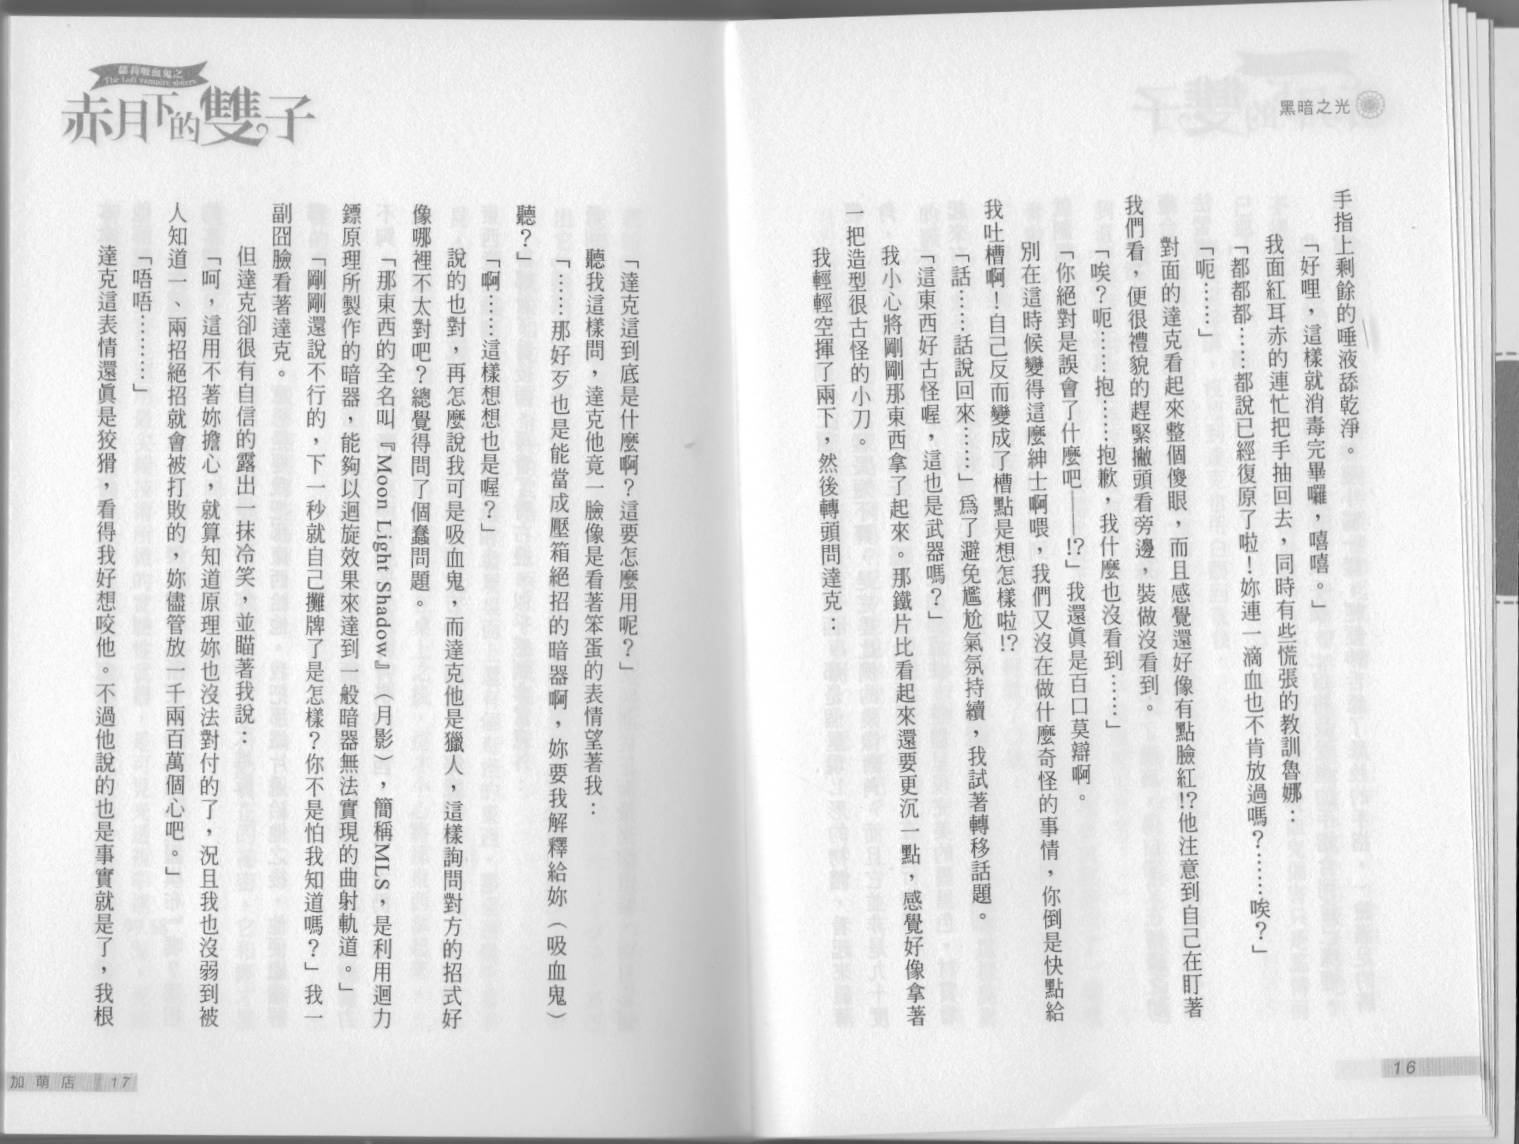 黑暗之光
手指上剩餘的唾液舔乾淨。
「好哩，這樣就消毒完畢囉，嘻嘻。」
我面紅耳赤的連忙把手抽回去，同時有些慌張的教訓魯娜：
「都都都……都說已經復原了啦！妳連一滴血也不肯放過嗎？……唉？」
「呃……」
對面的達克看起來整個傻眼，而且感覺還好像有點臉紅!?他注意到自己在盯著
我們看，便很禮貌的趕緊撇頭看旁邊，裝做沒看到。
「唉？呃……抱……抱歉，我什麼也沒看到……」
「你絕對是誤會了什麼吧——!?」我還真是百口莫辯啊。
別在這時候變得這麼紳士啊喂，我們又沒在做什麼奇怪的事情，你倒是快點給
我吐槽啊！自己反而變成了槽點是想怎樣啦!?
「話……話說回來……」為了避免尷尬氣氛持續，我試著轉移話題。
「這東西好古怪喔，這也是武器嗎？」
我小心將剛剛那東西拿了起來。那鐵片比看起來還要更沉一點，感覺好像拿著
一把造型很古怪的小刀。
我輕輕空揮了兩下，然後轉頭問達克：
16
蘿莉吸血鬼之
The Loli vampire sisters
赤月下的雙子
「達克這到底是什麼啊？這要怎麼用呢？」
聽我這樣問，達克他竟一臉像是看著笨蛋的表情望著我：
「……那好歹也是能當成壓箱絕招的暗器啊，妳要我解釋給妳（吸血鬼）
聽？」
「啊……這樣想想也是喔？」
說的也對，再怎麼說我可是吸血鬼，而達克他是獵人，這樣詢問對方的招式好
像哪裡不太對吧？總覺得問了個蠢問題。
「那東西的全名叫『Moon Light Shadow』（月影），簡稱MLS，是利用迴力
鏢原理所製作的暗器，能夠以迴旋效果來達到一般暗器無法實現的曲射軌道。」
「剛剛還說不行的，下一秒就自己攤牌了是怎樣？你不是怕我知道嗎？」我一
副囧臉看著達克。
但達克卻很有自信的露出一抹冷笑，並瞄著我說：
「呵，這用不著妳擔心，就算知道原理妳也沒法對付的了，況且我也沒弱到被
人知道一、兩招絕招就會被打敗的，妳儘管放一千兩百萬個心吧。」
「唔唔………」
達克這表情還真是狡猾，看得我好想咬他。不過他說的也是事實就是了，我根
加萌店 17